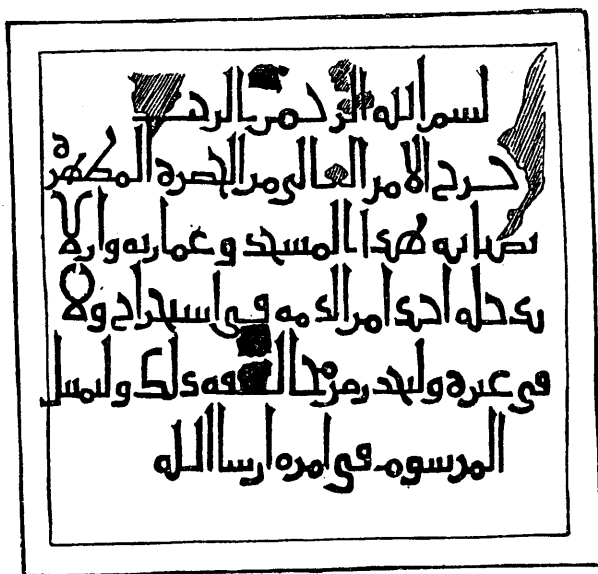 بسم الله الرحمن الرحيم
خرج الامر العالى من الحضرة المطهرة
بصيانه هذا المسجد وعمارته وان لا
يدخله احد من الذمه فى استخراج ولا
فى غيره وليحذر من مخالفه ذلك وليمتثل
المرسوم فى امره ان شا الله